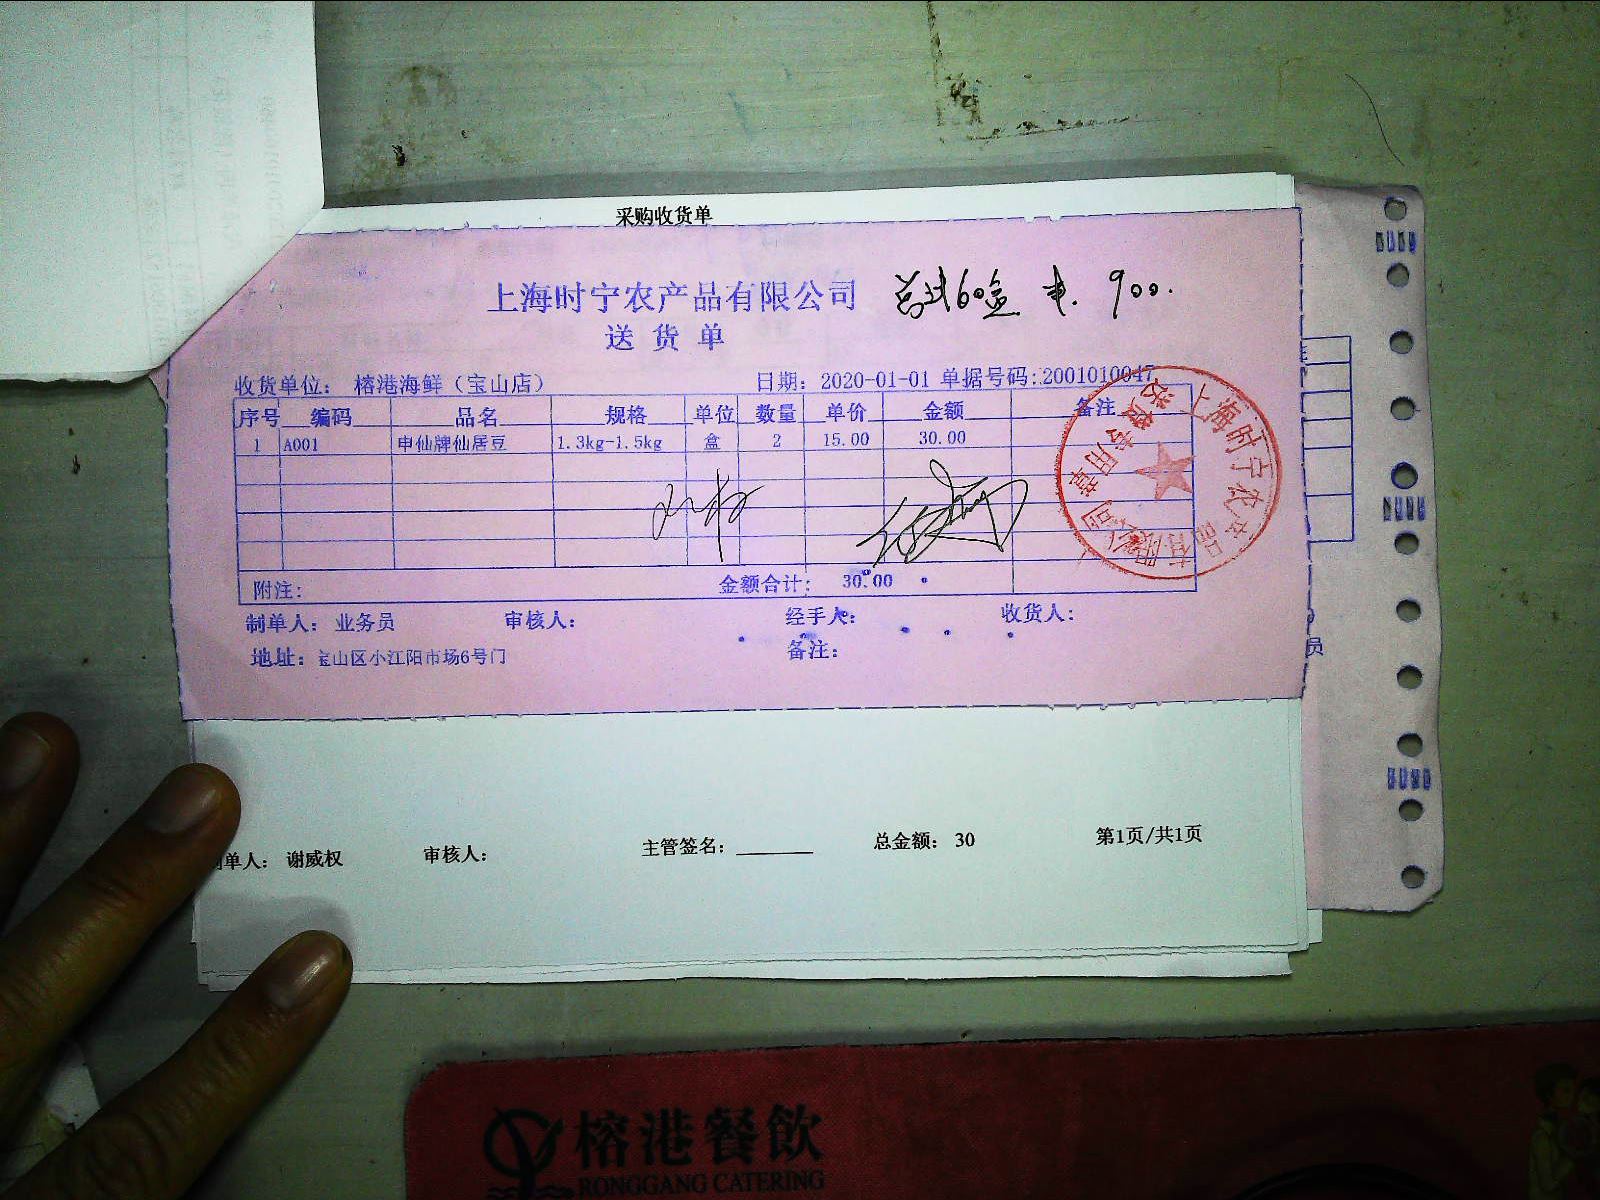 采购收货单
上海时宁农产品有限公司 60盒 900.
送货单
收货单位： 榕港海鲜（宝山店） 日期：2020-01-01 单据号码：2001010047
序号 编码 品名 规格 单位 数量 单价 金额 备注
1 A001 申仙牌仙居豆 1.3kg-1.5kg 盒 2 15.00 30.00
上海时宁农产品有限公司
专用章
附注： 金额合计： 30.00
制单人： 业务员 审核人： 经手人： 收货人：
地址：宝山区小江阳市场6号门 备注：
员
制单人： 谢威权 审核人： 主管签名：________ 总金额： 30 第1页/共1页
榕港餐飲
RONGGANG CATERING